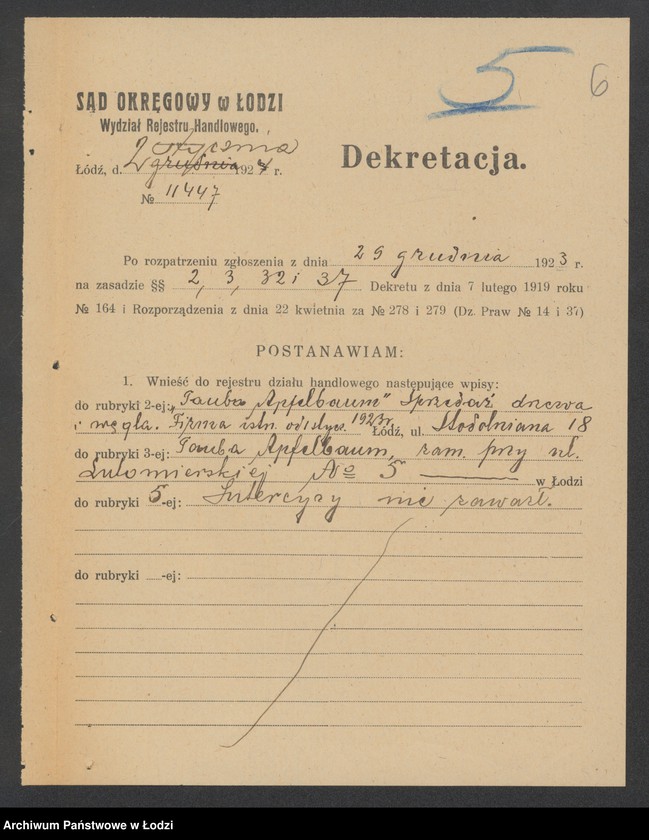 5
6
SĄD OKRĘGOWY w ŁODZI
Wydział Rejestru Handlowego.
stycznia
Łódź, d. 2 grudnia 1924 r.
№ 11447
Dekretacja.
Po rozpatrzeniu zgłoszenia z dnia 29 grudnia 1923 r.
na zasadzie §§ 2, 3, 32 i 37 Dekretu z dnia 7 lutego 1919 roku
№ 164 i Rozporządzenia z dnia 22 kwietnia za № 278 i 279 (Dz. Praw № 14 i 37)
POSTANAWIAM:
1. Wnieść do rejestru działu handlowego następujące wpisy:
do rubryki 2-ej: „Tauba Apfelbaum" Sprzedaż drzewa
i węgla. Firma istn. od 1 stycz. 1923 r. Łódź, ul. Stodolniana 18
do rubryki 3-ej: Tauba Apfelbaum, zam. przy ul.
Lutomierskiej № 5 w Łodzi
do rubryki 5-ej: Intercyzy nie zawarł.
do rubryki -ej:
Archiwum Państwowe w Łodzi